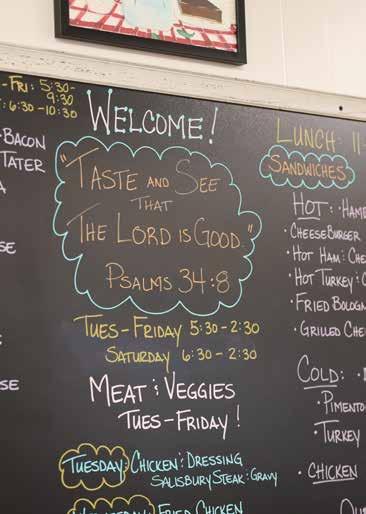 -FRI: 5:30-
9:30
: 6:30-10:30
BACON
TATER
WELCOME!
"TASTE AND SEE
THAT
THE LORD IS GOOD."
PSALMS 34:8
TUES-FRIDAY 5:30-2:30
SATURDAY 6:30-2:30
MEAT & VEGGIES
TUES-FRIDAY!
TUESDAY: CHICKEN & DRESSING
SALISBURY STEAK & GRAVY
FRIED CHICKEN
LUNCH 11
SANDWICHES
HOT: ·HAM
·CHEESEBURGER
·HOT HAM & CHE
·HOT TURKEY & C
·FRIED BOLOGN
·GRILLED CHE
COLD:
·PIMENTO
·TURKEY
·CHICKEN